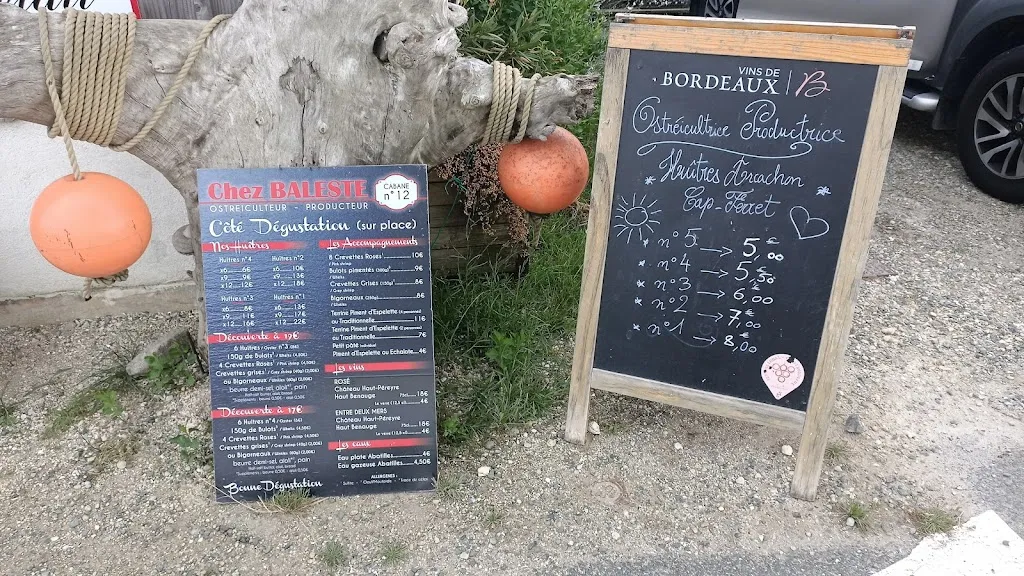 Chez BALESTE
CABANE
n°12
OSTREICULTEUR - PRODUCTEUR
Côté Dégustation (sur place)
Nos Huîtres
Huîtres n°4
x6......6€
x9......9€
x12....12€
Huîtres n°2
x6......10€
x9......13€
x12....18€
Huîtres n°3
x6......8€
x9......11€
x12....16€
Huîtres n°1
x6......13€
x9......17€
x12....22€
Découverte à 19€
6 Huîtres / Oyster n°3 (8€)
150g de Bulots* / Whelks (4,50€)
4 Crevettes Roses* / Pink shrimp
Crevettes grises* / Gray shrimp
ou Bigorneaux / Winkles
beurre demi-sel, aïoli**, pain
Découverte à 17€
6 Huîtres n°4 / Oyster (6€)
150g de Bulots* / Whelks (4,50€)
4 Crevettes Roses* / Pink shrimp
Crevettes grises* / Gray shrimp
ou Bigorneaux / Winkles
beurre demi-sel, aïoli**, pain
Bonne Dégustation
Les Accompagnements
8 Crevettes Roses*..........10€
/ Pink shrimp
Bulots pimentés (180g)*..........9€
/ Whelks
Crevettes Grises (150g)*..........8€
/ Gray shrimp
Bigorneaux (250g)..........8€
/ Winkles
Terrine Piment d'Espelette
ou Traditionnelle..........11€
Terrine Piment d'Espelette
ou Traditionnelle..........7€
Petit pâté individuel
Piment d'Espelette ou Echalote...4€
Les vins
ROSÉ
Château Haut-Péreyre
Haut Benauge
18€
Le verre
4€
ENTRE DEUX MERS
Château Haut-Péreyre
Haut Benauge
18€
Le verre
4€
Les eaux
Eau plate Abatilles..........4€
Eau gazeuse Abatilles......4,50€
ALLERGENES :
VINS DE
BORDEAUX | B
Ostréicultrice Productrice
Huîtres Arcachon
Cap-Ferret
n°5 → 5,00€
* n°4 → 5,50€
* n°3 → 6,00€
* n°2 → 7,00€
* n°1 → 8,00€